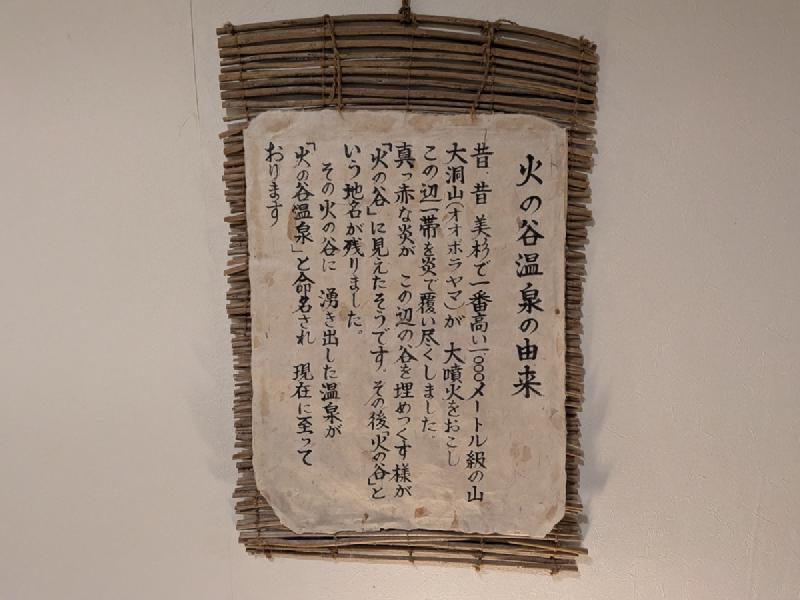 火の谷温泉の由来
昔、昔 美杉で一番高い一〇〇〇メートル級の山
大洞山(オオボラヤマ)が 大噴火をおこし
この辺一帯を炎で覆い尽くしました。
真っ赤な炎が この辺の谷を埋めつくす様が
「火の谷」に見えたそうです。その後「火の谷」と
いう地名が残りました。
その火の谷に 湧き出した温泉が
「火の谷温泉」と命名され 現在に至って
おります